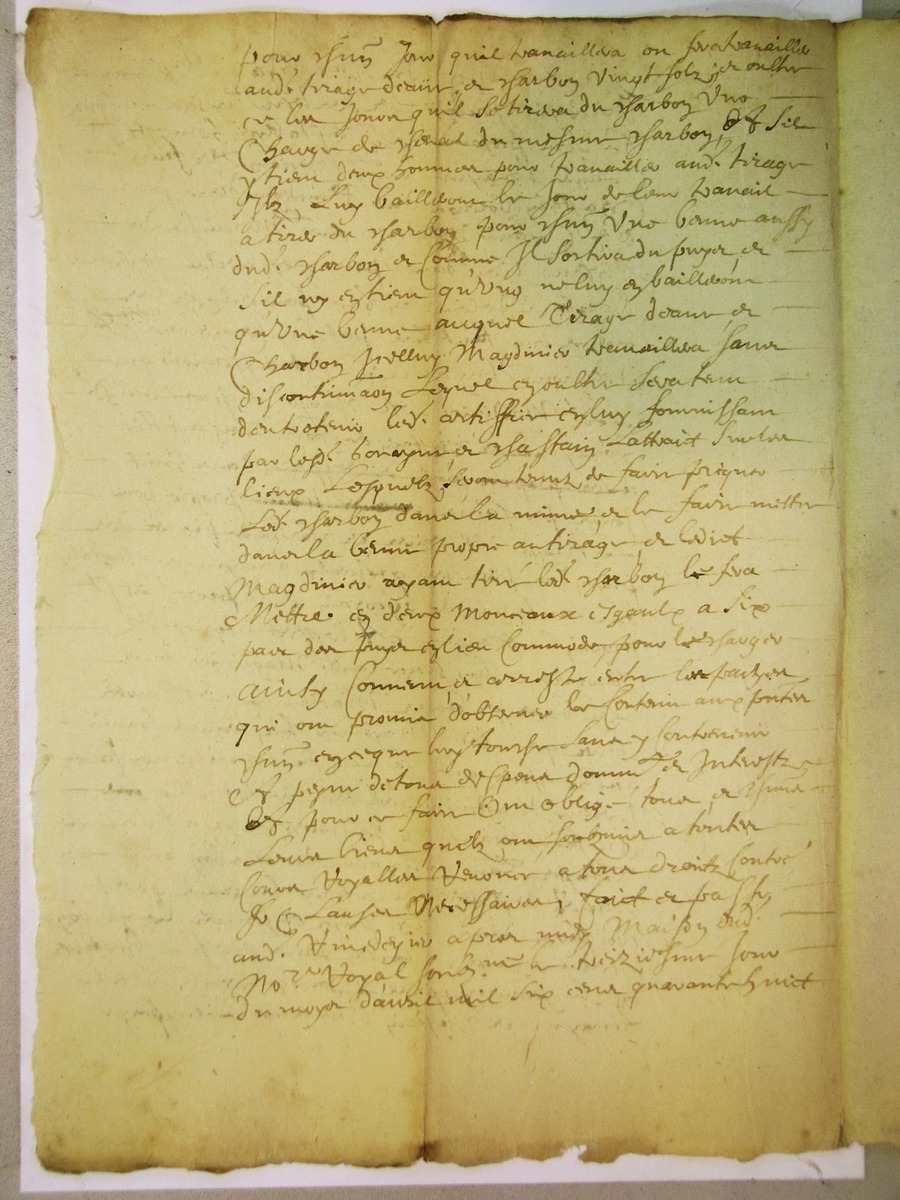 pour chūn Jour quil travaillera ou fera travailler
aud. tirage deaue et charbon vingt solz et oultre
ce les Jours quil se tirera du charbon Une
Charge de cheval du mesme charbon, Et Sil
y tient deux hommes pour travailler aud. tirage
Ilz Luy bailleront le Jour de leur travail
a tirer du charbon pour chūn Une benne aussy
dud. charbon et Comme Il Sortira du puys et
Sil ny en tient qu'Ung ne luy en bailleront
qu'Une benne auquel Tirage deaue et
Charbon Icelluy Magdinier travaillera sans
discontinuaōn Lequel en oultre Sera tenu
dentretenir led. artiffice en luy fournissant
par lesd. et chastain Lattraict Sur les
lieux Lesquelz seront tenuz de faire picquer
Led. charbon dans la mine et le faire mettre
dans la benne propre au tirage et ledict
Magdinier ayant tiré led. charbon le fera
Mettre en deux Monceaux esgaulx a six
pas des puys en lieu Commode pour le charger
ainsy Convenu et arresté entre les partyes
qui ont promis d'observer le Contenu aux pntes
chūn en ce que luy touche sans y contrevenir
Et peyne de tous despens domm. et Interestz
Et pour ce faire Ont obligé tous et chūns
Leurs biens quilz ont soubzmis a toutes
Cours Royalles Renoncé a tous droictz Contre
Et Clauses Necessaires, faict et passé
aud. apres midy Maison dud.
No.re Royal soubz.né le treiziesme Jour
du moys davril mil six cens quarante huict